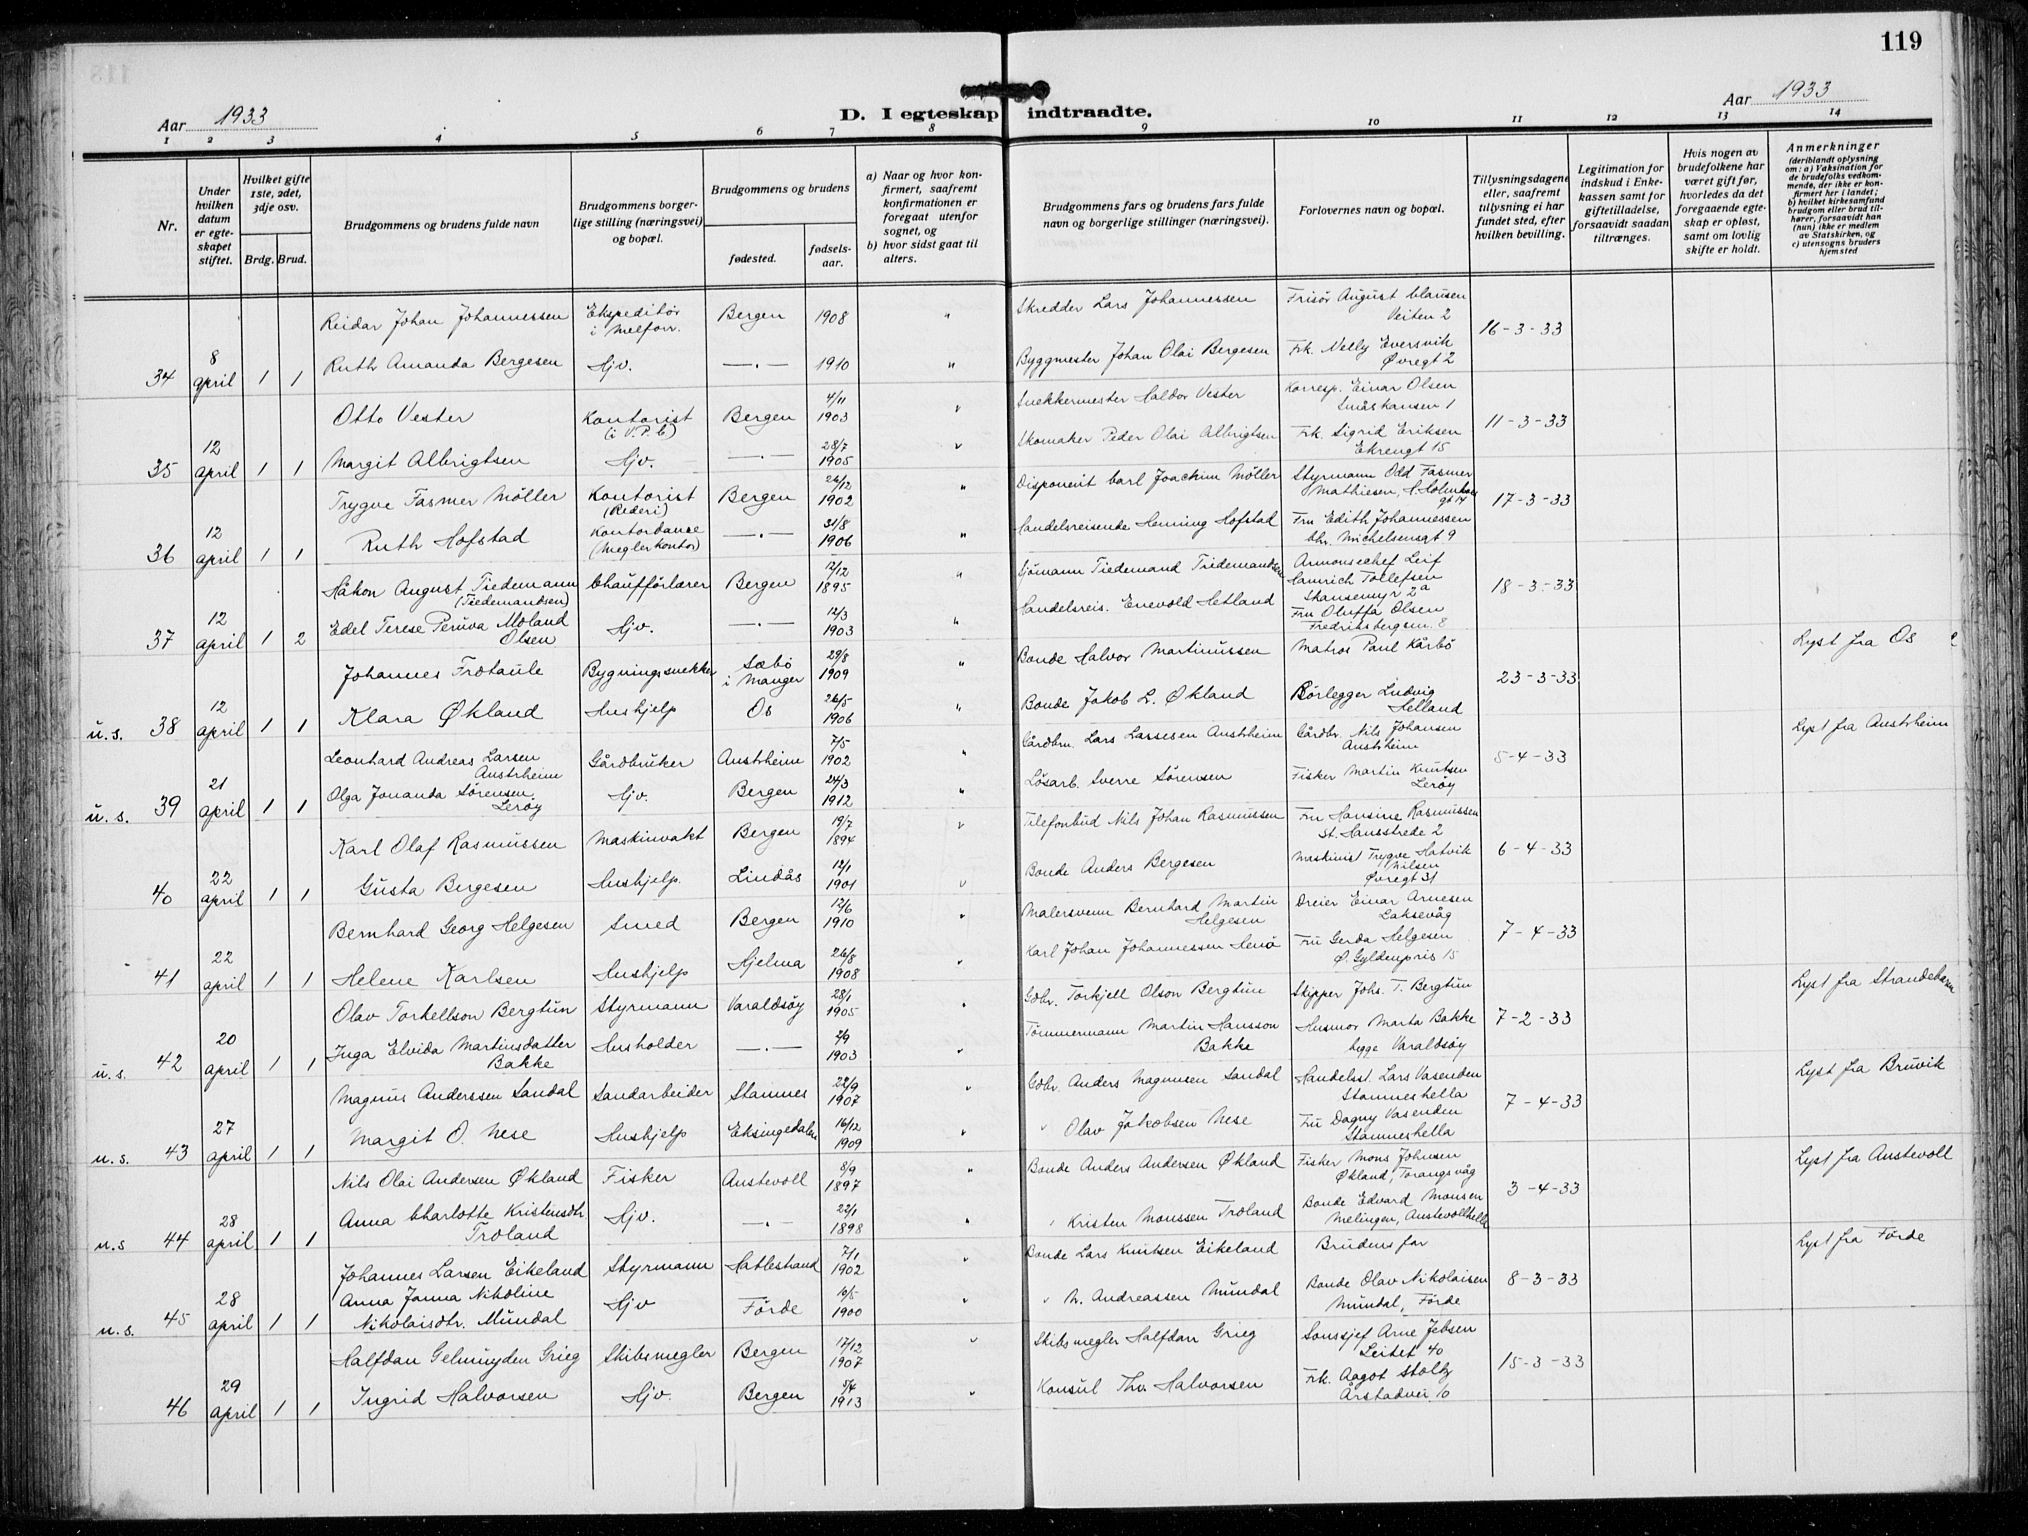 119
Aar 1933
Aar 1933
D. I egteskap indtraadte.
1 2 3 4 5 6 7 8 9 10 11 12 13 14
Nr.
Under hvilken datum er egteskapet stiftet.
Hvilket gifte 1ste, 2det, 3dje osv.
Brdg. Brud.
Brudgommens og brudens fulde navn
Brudgommens borgerlige stilling (næringsvei) og bopæl.
Brudgommens og brudens
fødested.
fødselsaar.
a) Naar og hvor konfirmert, saafremt konfirmationen er foregaat utenfor sognet, og
b) hvor sidst gaat til alters.
Brudgommens fars og brudens fars fulde navn og borgerlige stillinger (næringsvei).
Forlovernes navn og bopæl.
Tillysningsdagene eller, saafremt tillysning ei har fundet sted, efter hvilken bevilling.
Legitimation for indskud i Enkekassen samt for giftetilladelse, forsaavidt saadan tiltrænges.
Hvis nogen av brudefolkene har været gift før, hvorledes da det foregaaende egteskap er opløst, samt om lovlig skifte er holdt.
Anmerkninger
(deriblandt oplysning om: a) Vaksination for de brudefolks vedkommende, der ikke er konfirmert her i landet; b) hvilket kirkesamfund brudgom eller brud tilhører, forsaavidt han (hun) ikke er medlem av Statskirken, og c) utensogns bruders hjemsted
Reidar Johan Johannessen Ekspeditør i Melforr. Bergen 1908 " Skredder Lars Johannessen Frisør August Clausen Veiten 2 16-3-33
34 8 april 1 1 Ruth Amanda Bergesen Hjv. —.— 1910 " Byggmester Johan Olai Bergesen Frk. Nelly Eversvik Øvregt 2
Otto Vester Kontorist (i V.P.C) Bergen 4/11 1903 " Snekkermester Haldor Vester Korresp. Einar Olsen Småskansen 1 11-3-33
35 12 april 1 1 Margit Albrigtsen Hjv. —.— 28/7 1905 " Skomaker Peder Olai Albrigtsen Frk. Sigrid Eriksen Ekrengt 15
Trygve Fasmer Møller Kontorist (Rederi) Bergen 26/12 1902 " Disponent Carl Joachim Møller Styrmann Odd Fasmer Mathiesen, H. Holmboes gt 14 17-3-33
36 12 april 1 1 Ruth Hofstad Kontordame (Meglerkontor) —.— 31/8 1906 " Handelsreisende Henning Hofstad Fru Edith Johannessen Chr. Michelsensgt 9
Håkon August Tiedemann (Tiedemandsen) Chaufførlærer Bergen 12/12 1895 " Sjømann Tiedemand Tiedemandsen Annonsechef Leif Hamrich Tollefsen Skansemyr 2a 18-3-33
37 12 april 1 2 Edel Terese Peruva Moland Olsen Hjv. —.— 12/3 1903 " Handelsreis. Enevold Hetland Fru Oluffa Olsen Fredriksbergsm. 8
Johannes Frotaule Bygningssnekker Sæbø i Manger 29/8 1909 " Bonde Halvor Martinussen Matros Paul Kårbø 23-3-33 Lyst fra Os
u.s. 38 12 april 1 1 Klara Økland Hushjelp Os 26/5 1906 " Bonde Jakob L. Økland Rørlegger Ludvig Helland
Leonhard Andreas Larsen Austrheim Gårdbruker Austrheim 7/5 1902 " Gårdbr. Lars Lassesen Austrheim Gårdbr. Nils Johansen Austrheim 5-4-33 Lyst fra Austrheim
u.s. 39 21 april 1 1 Olga Jonanda Sørensen Lerøy Hjv. Bergen 24/3 1912 " Løsarb. Sverre Sørensen Fisker Martin Knutsen Lerøy
Karl Olaf Rasmussen Maskinvakt Bergen 19/7 1894 " Telefonbud Nils Johan Rasmussen Fru Hansine Rasmussen St. Hansstrede 2 6-4-33
40 22 april 1 1 Gusta Bergesen Hushjelp. Lindås 12/1 1901 " Bonde Anders Bergesen Maskinist Trygve Hatvik Nilsen Øvregt 31
Bernhard Georg Helgesen Smed Bergen 12/6 1910 " Malersvenn Bernhard Martin Helgesen Dreier Einar Arnesen Laksevåg 7-4-33
41 22 april 1 1 Helene Karlsen Hushjelp Hjelma 26/8 1908 " Karl Johan Johannessen Henø Fru Gerda Helgesen Ø. Gyldenpris 15
Olav Torkellson Bergtun Styrmann Varaldsøy 28/1 1905 " Gdbr. Torkjell Olson Bergtun Skipper Johs. T. Bergtun 7-2-33 Lyst fra Strandebarm
u.s. 42 20 april 1 1 Inga Elvida Martinsdatter Bakke Husholder —.— 2/9 1903 " Tømmermann Martin Hansson Bakke Husmor Marta Bakke begge Varaldsøy
Magnus Anderssen Sandal Sandarbeider Stamnes 22/9 1907 " Gdbr. Anders Magnusen Sandal Handelsst. Lars Vasenden Stamneshella 7-4-33 Lyst fra Bruvik
u.s. 43 27 april 1 1 Margit O. Nese Hushjelp Eksingedalen 16/12 1909 " " Olav Jakobsen Nese Fru Dagny Vasenden Stamneshella
Nils Olai Andersen Økland Fisker Austevoll 8/9 1897 " Bonde Anders Andersen Økland Fisker Mons Johnsen Økland, Torangsvåg 3-4-33 Lyst fra Austevoll
u.s 44 28 april 1 1 Anna Charlotte Kristensdtr Troland Hjv. —.— 22/1 1898 " " Kristen Monssen Troland Bonde Edvard Monsen Melingen, Austevollhella
Johannes Larsen Eikeland Styrmann Hatlestrand 7/1 1902 " Bonde Lars Knutsen Eikeland Brudens far 8-3-33 Lyst fra Førde
u.s. 45 28 april 1 1 Anna Janna Nikoline Nikolaisdtr. Mundal Hjv Førde 16/5 1900 " " N. Andreassen Mundal Bonde Olav Nikolaisen Mundal, Førde
Halfdan Gelmuyden Grieg Skibsmegler Bergen 17/12 1907 " Skibsmegler Halfdan Grieg Sousjef Arne Jebsen Leitet 40 15-3-33
46 29 april 1 1 Ingrid Halvorsen Hjv. Bergen 5/4 1913 " Konsul Thv. Halvorsen Frk. Aagot Stoltz Årstadvei 10